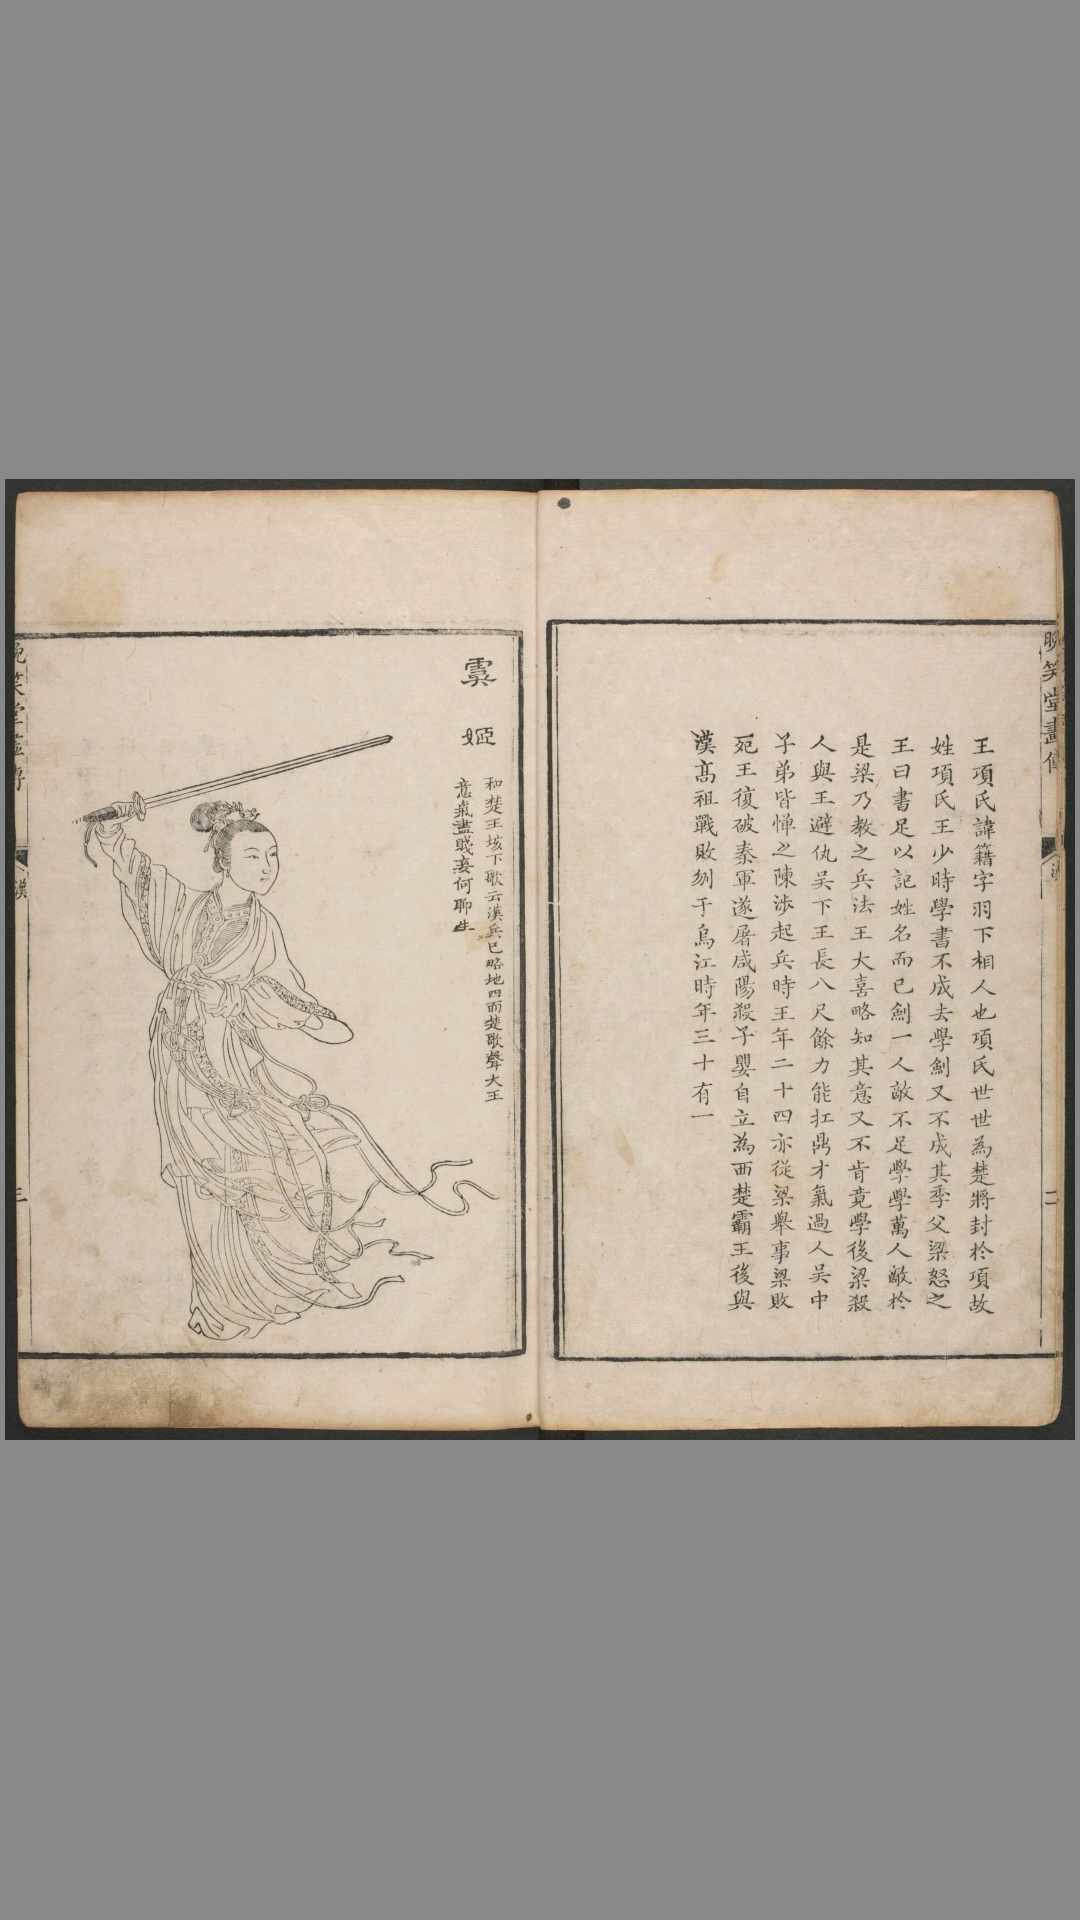 晚笑堂畫傳
王項氏諱籍字羽下相人也項氏世世為楚將封於項故
姓項氏王少時學書不成去學劍又不成其季父梁怒之
王曰書足以記姓名而已劍一人敵不足學學萬人敵於
是梁乃教之兵法王大喜略知其意又不肯竟學後梁殺
人與王避仇吳下王長八尺餘力能扛鼎才氣過人吳中
子弟皆憚之陳涉起兵時王年二十四亦從梁舉事梁敗
死王復破秦軍遂屠咸陽殺子嬰自立為西楚霸王後與
漢高祖戰敗刎于烏江時年三十有一
二
虞姬
和楚王垓下歌云漢兵已略地四面楚歌聲大王
意氣盡賤妾何聊生
晚笑堂畫傳
漢
三